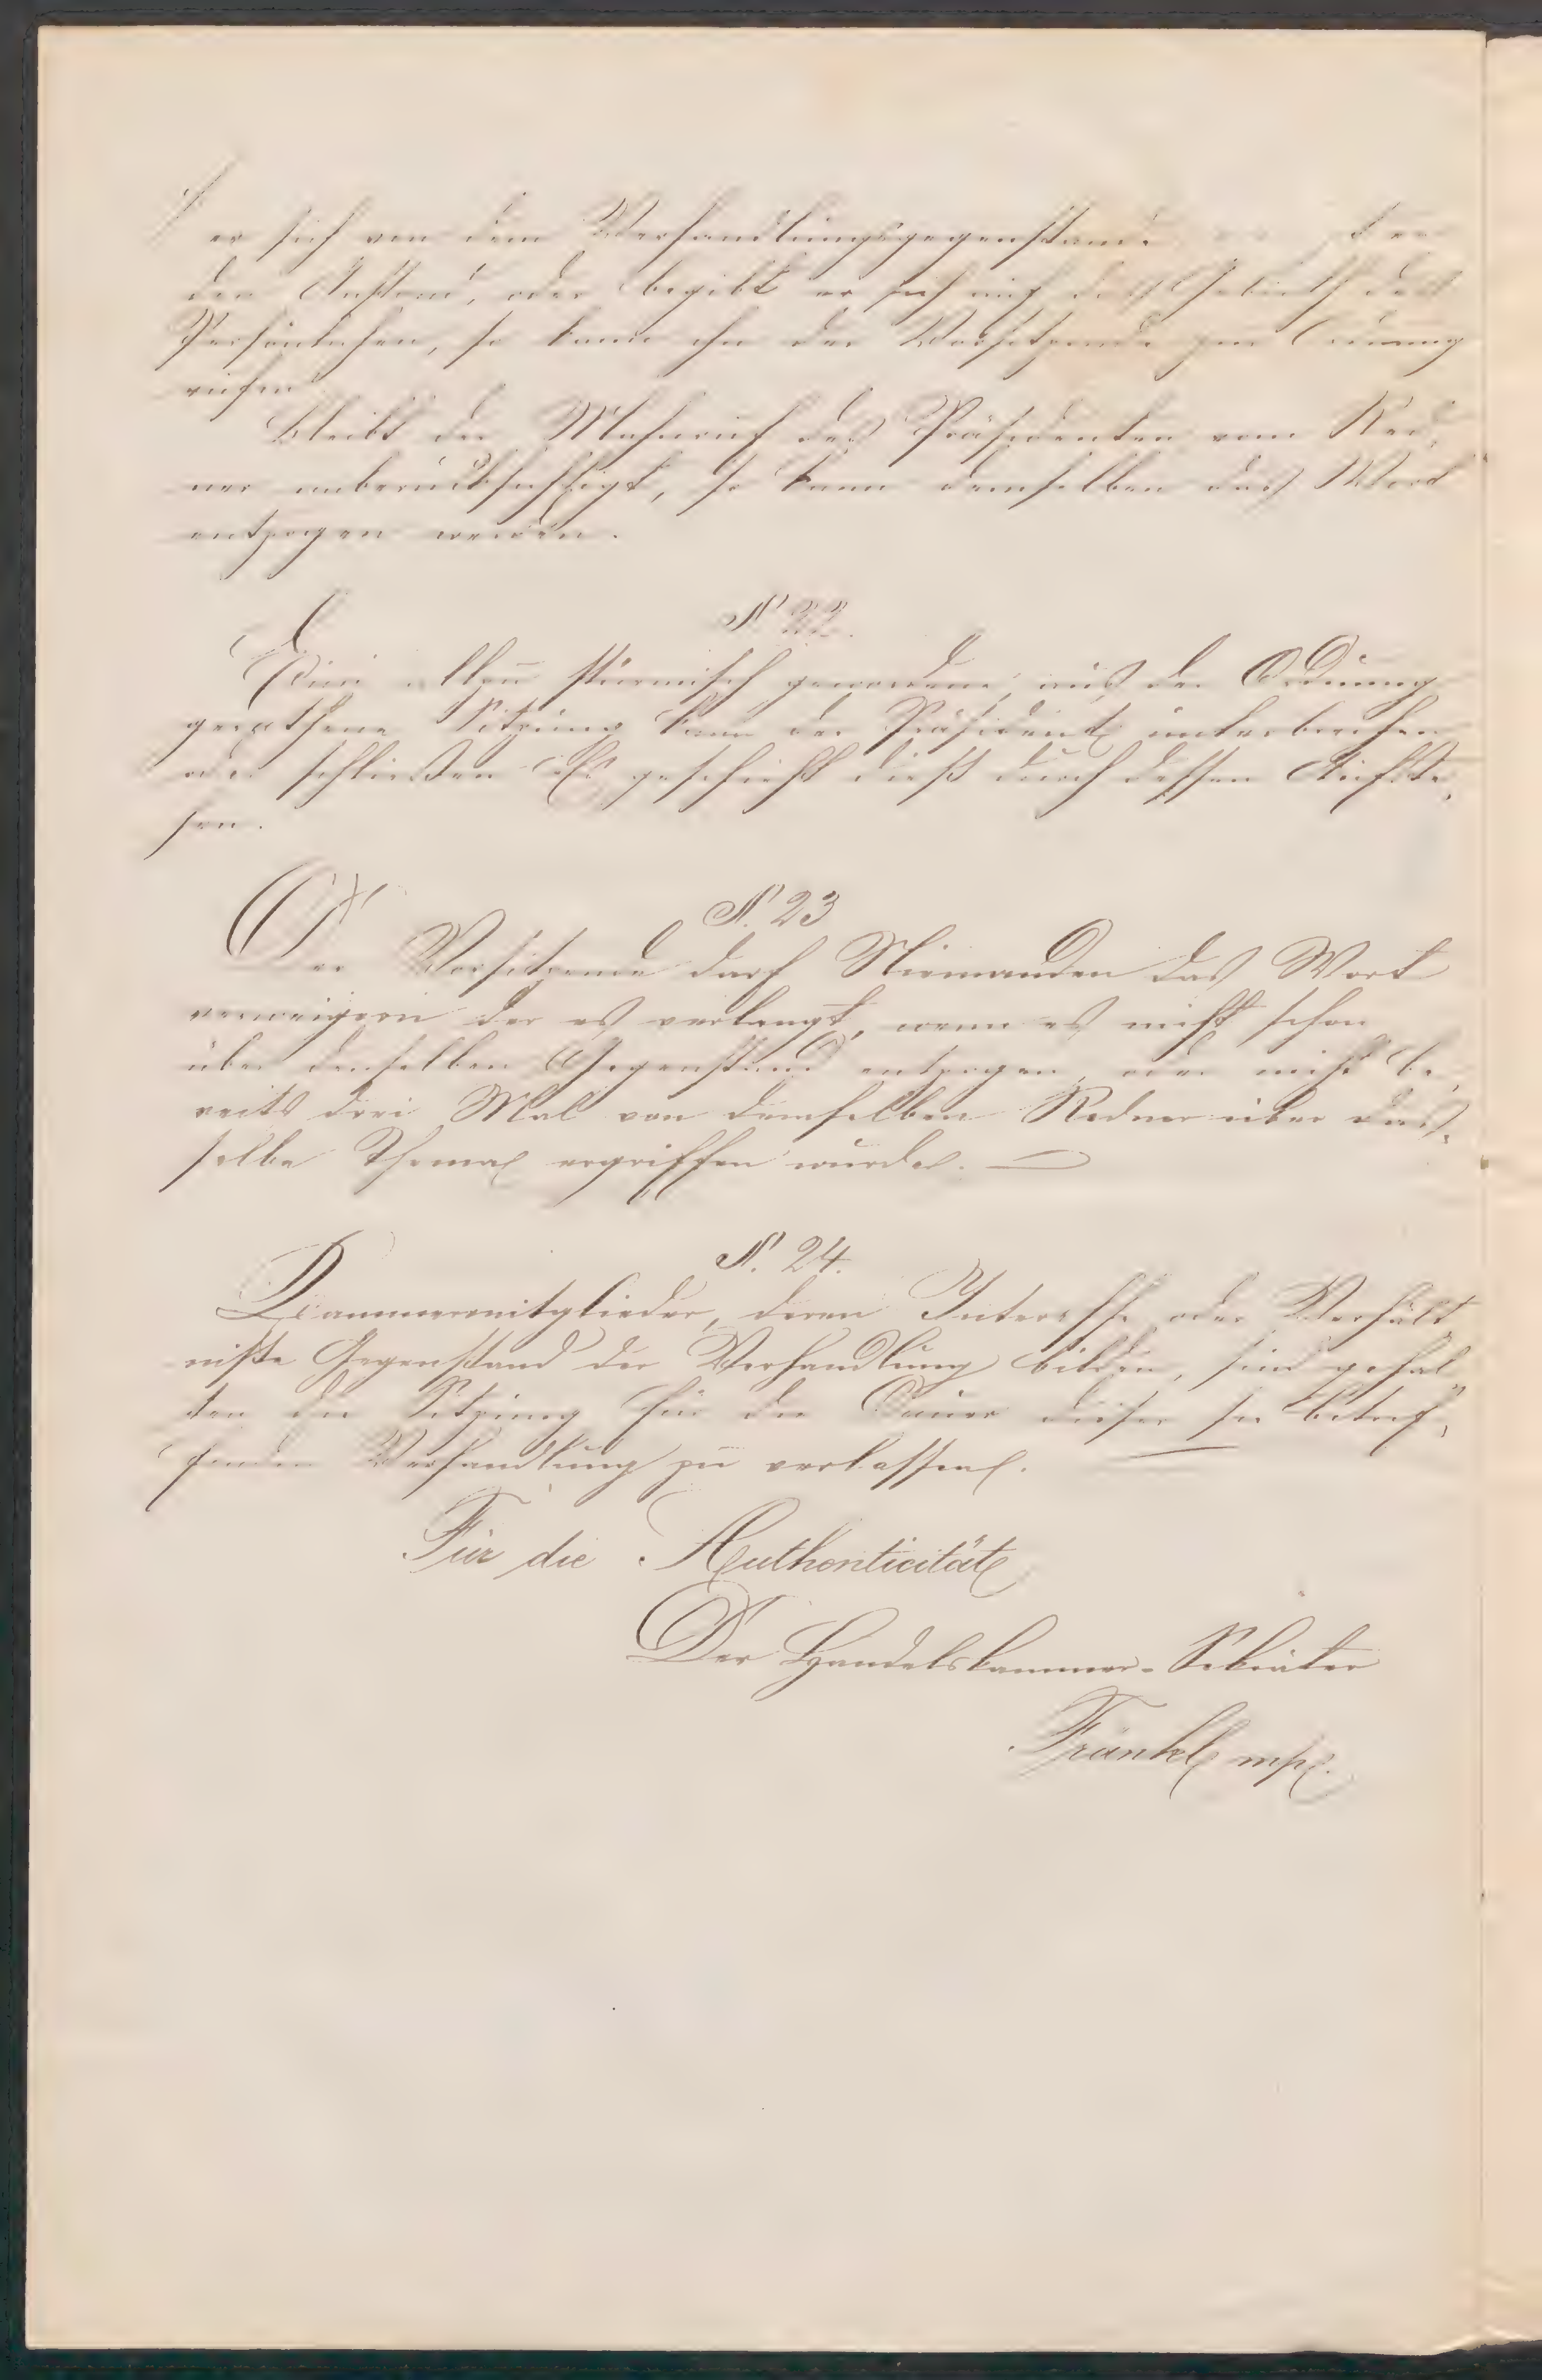 er sich von dem Verhandlungsgegenstande
den Anstand, oder begibt er sich auf das Gebieth des
Persönlichen, so kann ihn der Vorsitzende zur Ordnung
rufen.
Bleibt der Mahnruf des Präsidenten vom Red,
ner unberücksichtigt, so kann demselben das Wort
entzogen werden.
N. 22.
Eine allzu stürmisch gewordene, aus der Ordnung
gerathene Sitzung kann der Präsident unterbrechen
oder schließen. Es geschieht dieß durch dessen Aufste,
hen.
N. 23
Der Vorsitzende darf Niemanden das Wort
verweigern der es verlangt, wenn es nicht schon
über denselben Gegenstand entzogen, oder nicht be,
reits drei Mal von demselben Redner über das,
selbe Thema ergriffen wurde. —
N. 24.
Kammermitglieder, deren Interesse oder Verhält,
niße Gegenstand der Verhandlung bilden, sind gehal„
ten die Sitzung für die Dauer dieser sie betref,
fenden Verhandlung zu verlassen. —
Für die Authenticität
Der Handelskammer-Sekretär
Fränkl mp.